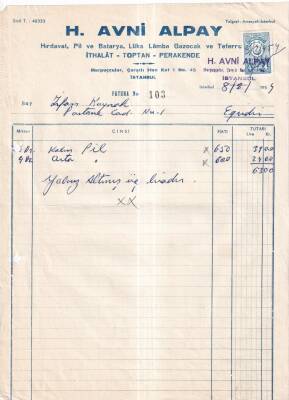 Sicil T.: 48333
Telgraf: Avnialpay-İstanbul
H. AVNİ ALPAY
Hırdavat, Pil ve Batarya, Lüks Lâmba Gazocak ve Teferru
İTHALÂT - TOPTAN - PERAKENDE
Marpuççular, Çarşılı Han Kat 1 No. 45
İSTANBUL
H. AVNİ ALPAY
İSTANBUL
FATURA No 103
İstanbul 8/2/1
Say Kaynak
Cad. No:1
Eğridir
Miktarı CİNSİ FİATI TUTARI
Lira Kr.
Kalın Pil x 650 3900
Orta " x 600 2400
6300
Yalnız Altmış üç liradır.
xx